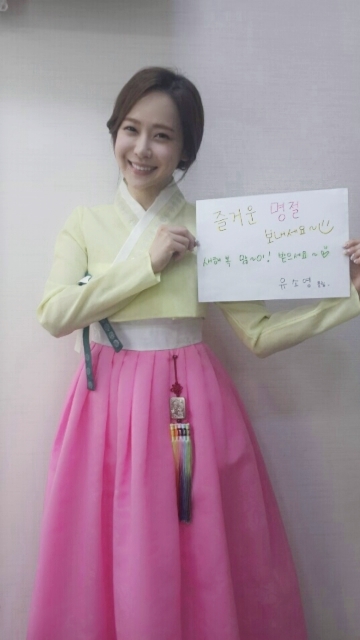 즐거운 명절
보내세요~
새해 복 많~이! 받으세요~
유소영